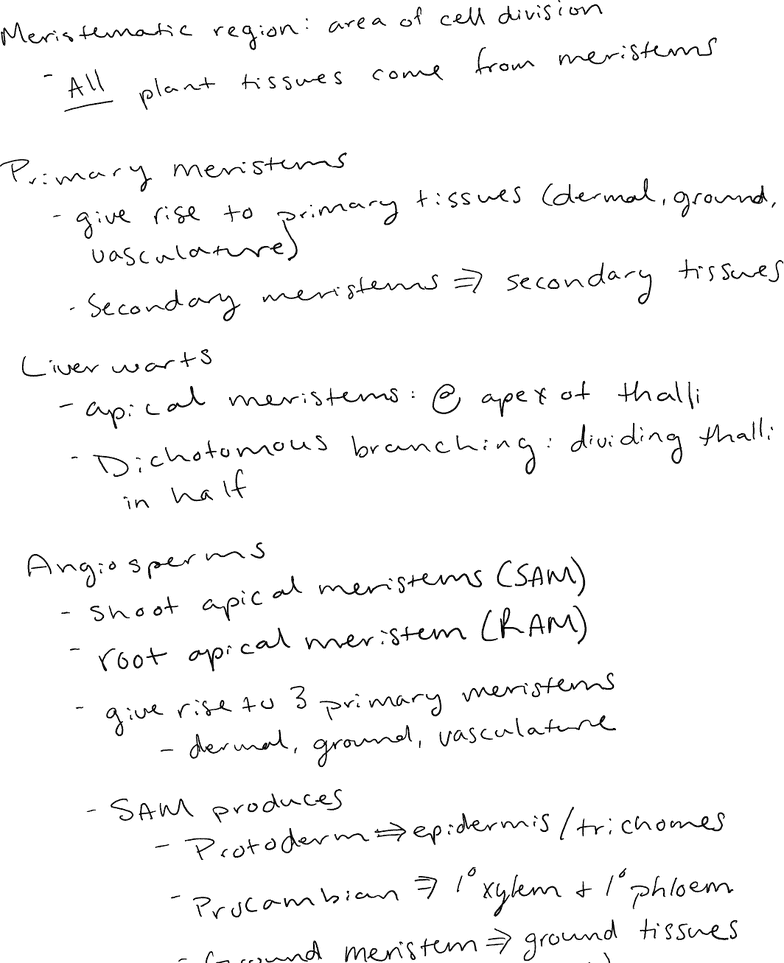 Meristematic region: area of cell division
- All plant tissues come from meristems
Primary meristems
- give rise to primary tissues (dermal, ground,
vasculature)
- Secondary meristems ⇒ secondary tissues
Liver warts
- apical meristems: @ apex of thalli
- Dichotomous branching: dividing thalli
in half
Angiosperms
- Shoot apical meristems (SAM)
- root apical meristem (RAM)
- give rise to 3 primary meristems
- dermal, ground, vasculature
- SAM produces
- Protoderm ⇒ epidermis/trichomes
- Procambian ⇒ 1° xylem + 1° phloem
- Ground meristem ⇒ ground tissues